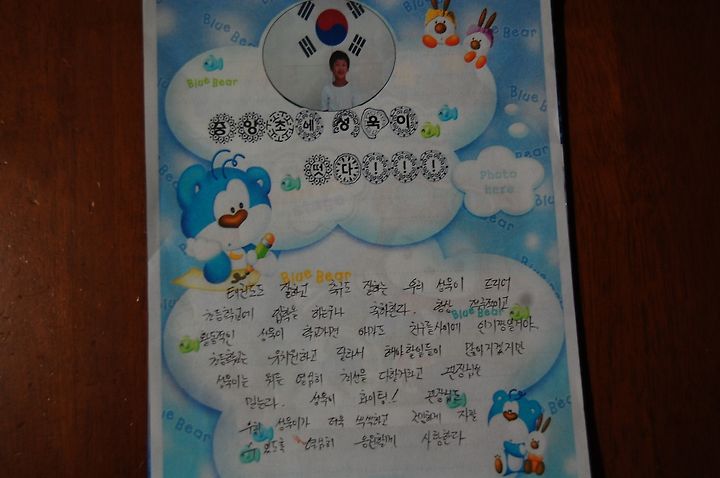 Blue Bear
Blue Bear
Blue Bear
중앙초에 성욱이
떳다!!!
Photo
here
Blue Bear
Blue Bear
태권도도 잘하고 축구도 잘하는 우리 성욱이 드디어
초등학교에 입학을 하는구나 축하한다. 항상 적극적이고
활동적인 성욱이 학교가면 아마도 친구들사이에 인기짱일거야.
초등학교는 유치원하고 달라서 해야할일들이 많아지겠지만
성욱이는 뭐든 열심히 최선을 다할거라고 관장님은
믿는다. 성욱이 화이팅! 관장님도
우리 성욱이가 더욱 씩씩하고 건강하게 자랄
수 있도록 열심히 응원할게 사랑한다
Blue Bear
Blue Bear